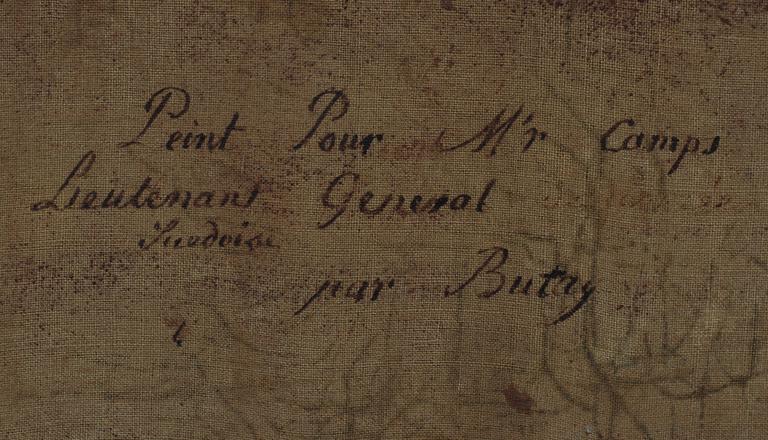 Peint Pour M'r Camps
Lieutenant General
Suedoise
par Butay